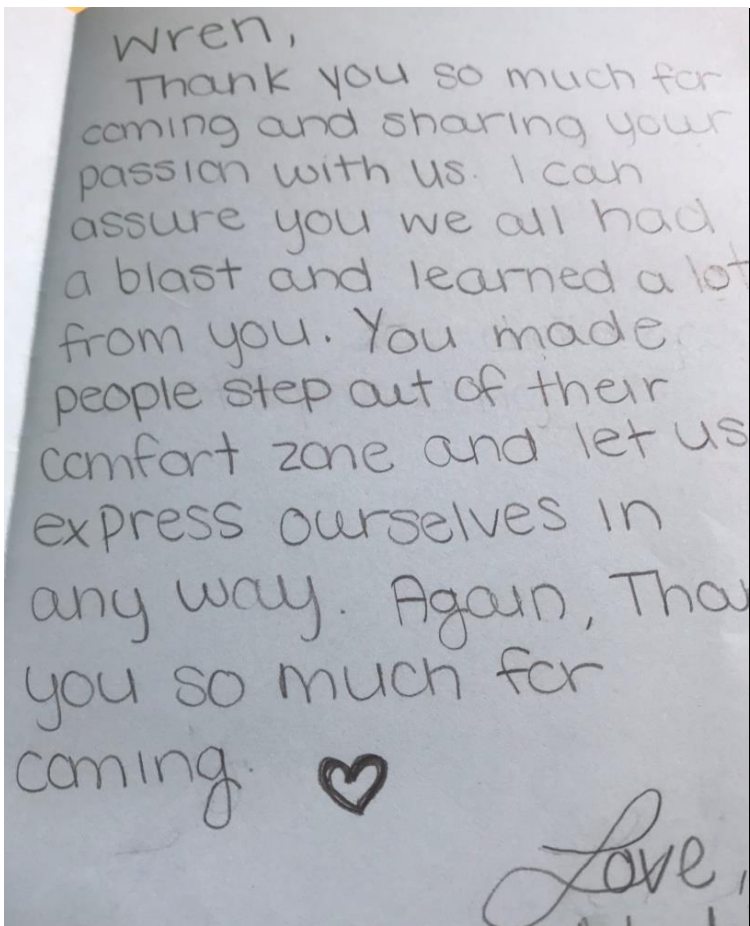 Wren,
Thank you so much for
coming and sharing your
passion with us. I can
assure you we all had
a blast and learned a lot
from you. You made
people step out of their
comfort zone and let us
express ourselves in
any way. Again,
you so much for
coming.
Love,